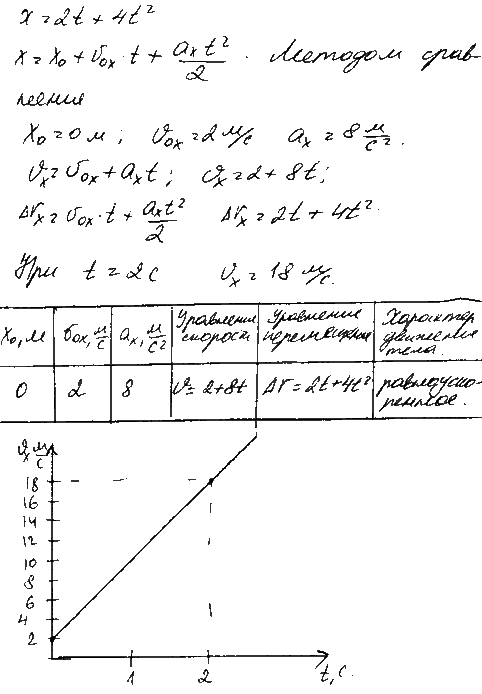 x = 2t + 4t²
x = x₀ + v₀ₓ · t + aₓt²/2. Методом срав-
нения
x₀ = 0 м; v₀ₓ = 2 м/с aₓ = 8 м/с².
vₓ = v₀ₓ + aₓt; vₓ = 2 + 8t;
Δrₓ = v₀ₓ · t + aₓt²/2 Δrₓ = 2t + 4t².
При t = 2 с vₓ = 18 м/с.
x₀, м | v₀ₓ, м/с | aₓ, м/с² | Уравнение скорости | Уравнение перемещения | Характер движения тела
0 | 2 | 8 | v = 2+8t | Δr = 2t+4t² | равноуско-
ренное.
vₓ м/с
18
16
14
12
10
8
6
4
2
1 2 t, с.